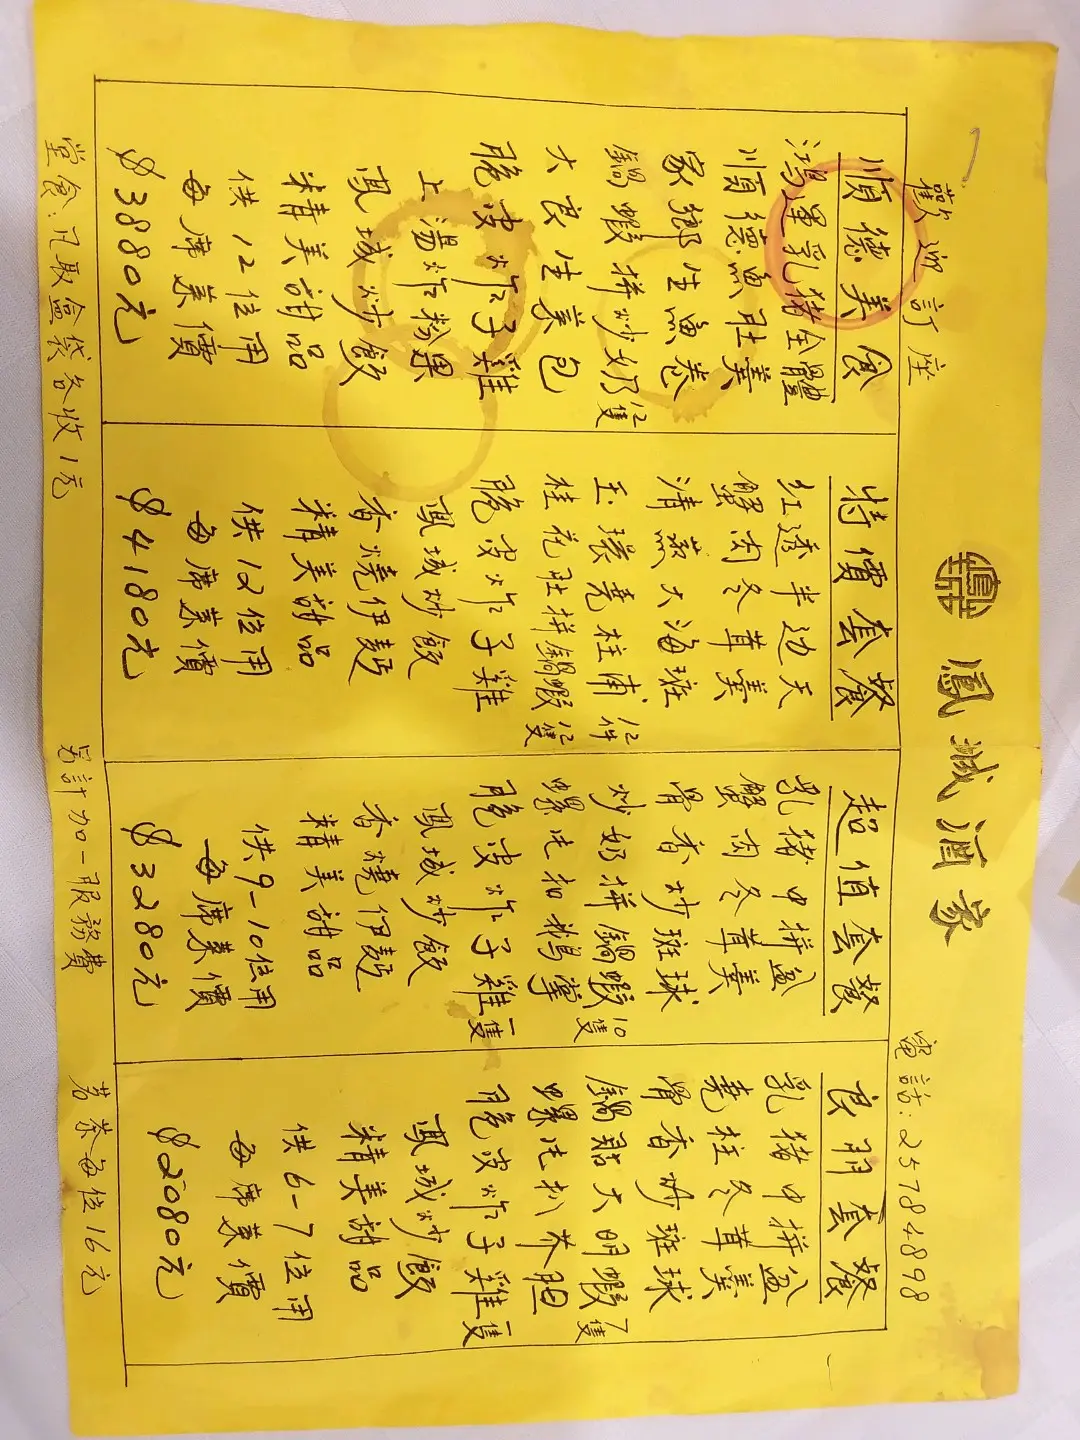 鳳城酒家
歡迎訂座
電話:25784898
順德美食
鴻運乳猪全體
順德魚肚羹
家鄉生魚卷
鍋蝦拼炒奶12隻
大良生菜包
脆皮炸子雞
上湯炸粉果
鳳城炒飯
精美甜品
供12位用
每席菜價
$3880元
特價套餐
红透半边天
蟹肉冬茸羹
清蒸大海斑
玉環瑤柱甫12件
桂花肚拼鍋蝦12隻
脆皮炸子雞
鳳城炒飯
香燒伊麵
精美甜品
供12位用
每席菜價
$4180元
超值套餐
乳猪中拼盆
蟹肉冬茸羹
骨香炒斑球
炒奶拼鍋蝦10隻
螺片扣鵝掌
脆皮炸子雞一隻
鳳城炒飯
香燒伊麵
精美甜品
供9-10位用
每席菜價
$3280元
良朋套餐
乳猪中拼盆
瑤柱冬茸羹
骨香炒斑球
鍋貼大明蝦7隻
螺片扒芥胆
脆皮炸子雞一隻
鳳城炒飯
精美甜品
供6-7位用
每席菜價
$2080元
堂食:凡取盒袋各收1元
另計加一服務費
茗茶每位16元